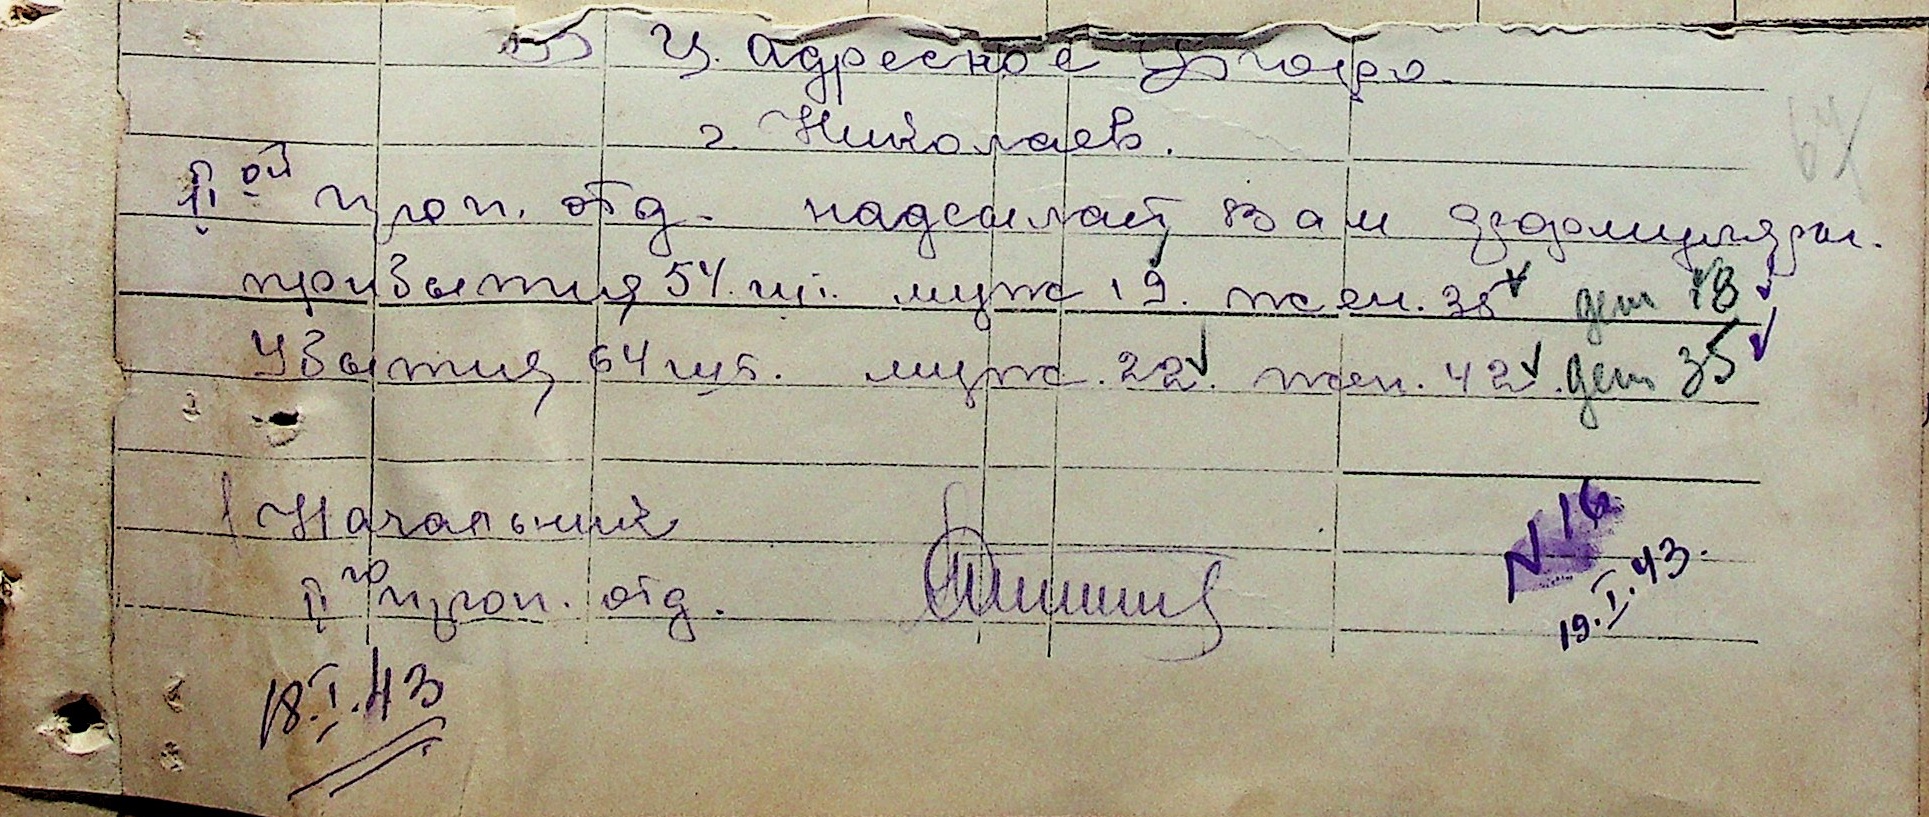 В Ц. адресное Бюро.
г. Николаев.
II ой проп. отд. надсилает Вам формуляры.
прибытия 54 шт. муж 19. жен. 35 дет 18
Убытия 64 шт. муж. 22. жен. 42. дет 35
Начальник
II го проп. отд.
N 16
19.I.43.
18.I.43